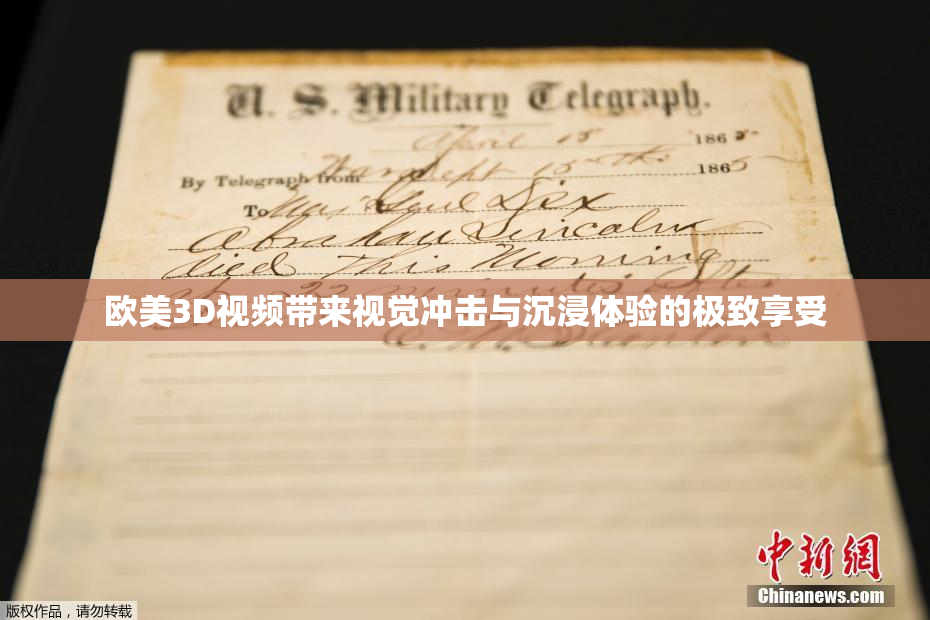 U. S. Military Telegraph.
April 15 1865
By Telegraph from War Dept 15th 1865
To Maj Genl Dix
Abraham Lincoln
died This Morning
22 minutes after
欧美3D视频带来视觉冲击与沉浸体验的极致享受
E. M. Stanton
中新网
Chinanews.com
版权作品，请勿转载